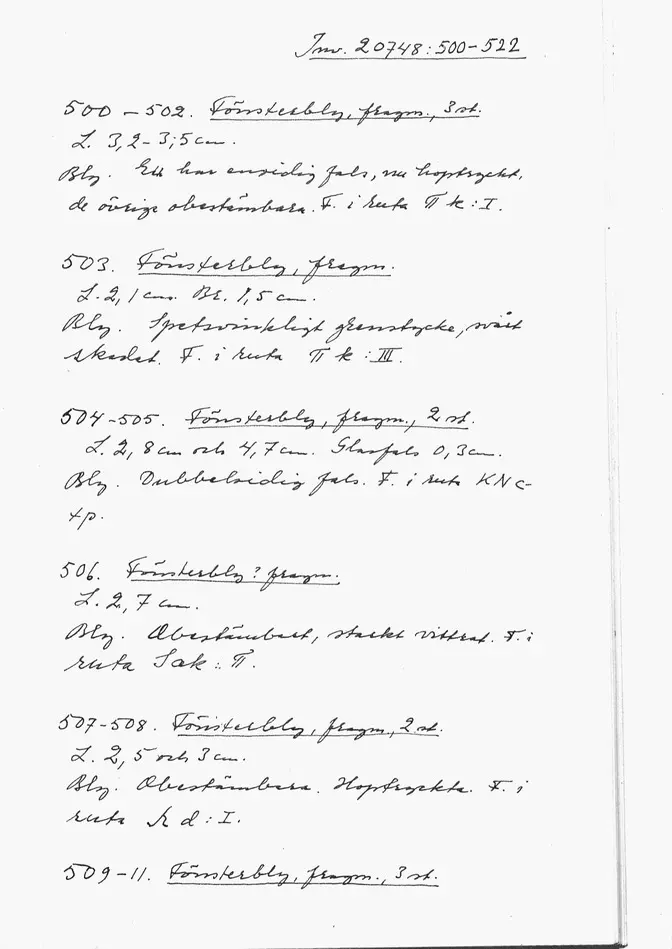 Inv. 20748:500-522
500-502. Fönsterbly, fragm., 3 st.
L. 3,2-3,5 cm.
Bly. Ett har ensidig fals, nu hoptryckt,
de övriga obestämbara. F. i ruta II k:I.
503. Fönsterbly, fragm.
L. 2,1 cm. Br. 1,5 cm.
Bly. Spetsvinkligt grenstycke, svårt
skadat. F. i ruta II k:III.
504-505. Fönsterbly, fragm., 2 st.
L. 2,8 cm och 4,7 cm. Glasfals 0,3 cm.
Bly. Dubbelsidig fals. F. i ruta KN c-
+p.
506. Fönsterbly? fragm.
L. 2,7 cm.
Bly. Obestämbart, starkt vittrat. F. i
ruta Sak:II.
507-508. Fönsterbly, fragm., 2 st.
L. 2,5 och 3 cm.
Bly. Obestämbara. Hoptryckta. F. i
ruta d:I.
509-11. Fönsterbly, fragm., 3 st.